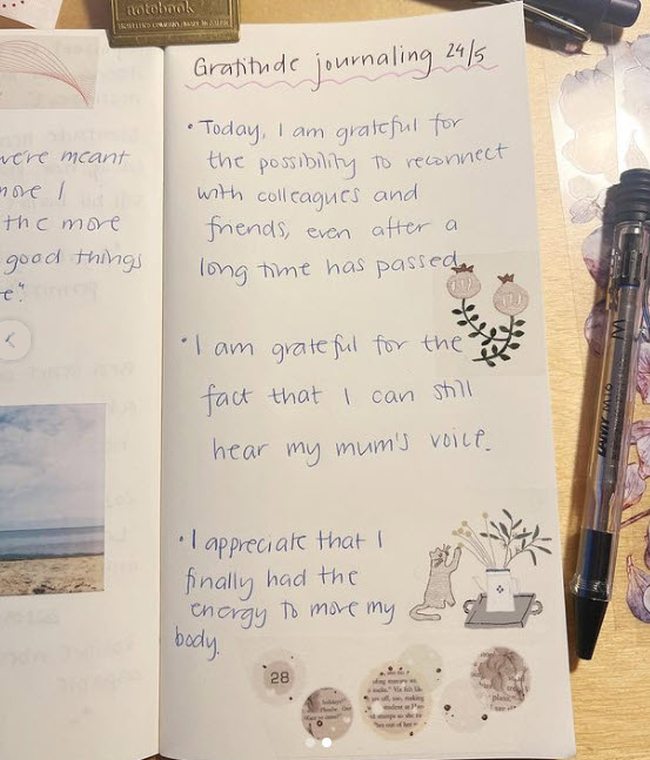 notebook
Gratitude journaling 24/5
we're meant
more I
the more
good things
e".
• Today, I am grateful for
the possibility to reconnect
with colleagues and
friends, even after a
long time has passed
• I am grateful for the
fact that I can still
hear my mum's voice.
• I appreciate that I
finally had the
energy to move my
body.
28